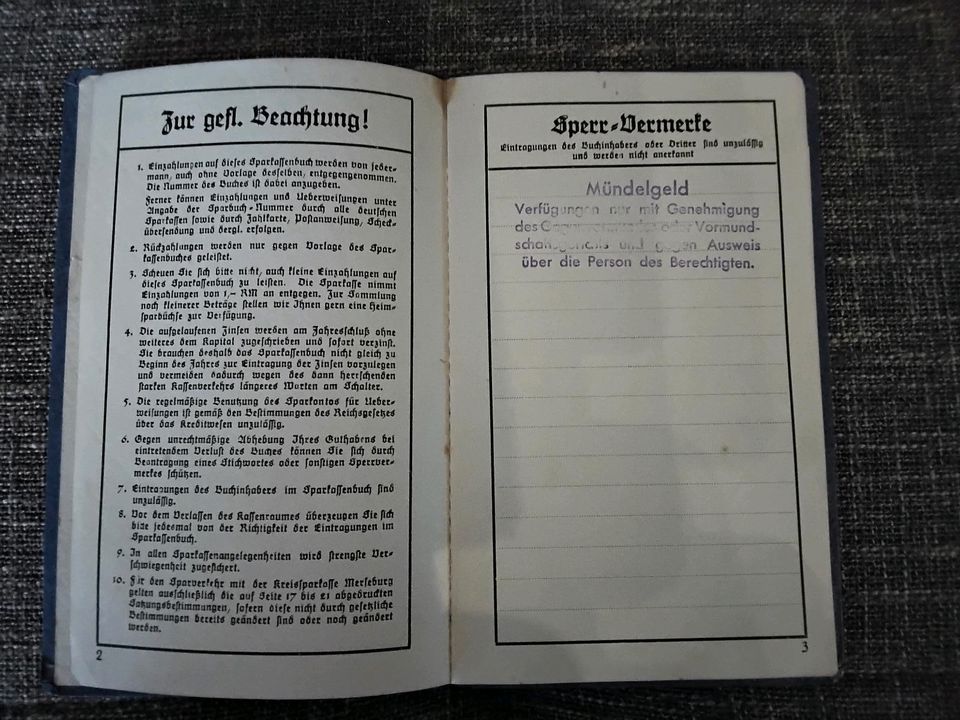 Zur gefl. Beachtung!
1. Einzahlungen auf dieses Sparkassenbuch werden von jeder-
mann, auch ohne Vorlage desselben, entgegengenommen.
Die Nummer des Buches ist dabei anzugeben.
Ferner können Einzahlungen und Ueberweisungen unter
Angabe der Sparbuch-Nummer durch alle deutschen
Sparkassen sowie durch Zahlkarte, Postanweisung, Scheck-
übersendung und dergl. erfolgen.
2. Rückzahlungen werden nur gegen Vorlage des Spar-
kassenbuches geleistet.
3. Scheuen Sie sich bitte nicht, auch kleine Einzahlungen auf
dieses Sparkassenbuch zu leisten. Die Sparkasse nimmt
Einzahlungen von 1,– RM an entgegen. Zur Sammlung
noch kleinerer Beträge stellen wir Ihnen gern eine Heim-
sparbüchse zur Verfügung.
4. Die aufgelaufenen Zinsen werden am Jahresschluß ohne
weiteres dem Kapital zugeschrieben und sofort verzinst.
Sie brauchen deshalb das Sparkassenbuch nicht gleich zu
Beginn des Jahres zur Eintragung der Zinsen vorzulegen
und vermeiden dadurch wegen des dann herrschenden
starken Kassenverkehrs längeres Warten am Schalter.
5. Die regelmäßige Benutzung des Sparkontos für Ueber-
weisungen ist gemäß den Bestimmungen des Reichsgesetzes
über das Kreditwesen unzulässig.
6. Gegen unrechtmäßige Abhebung Ihres Guthabens bei
eintretendem Verlust des Buches können Sie sich durch
Beantragung eines Stichwortes oder sonstigen Sperrver-
merkes schützen.
7. Eintragungen des Buchinhabers im Sparkassenbuch sind
unzulässig.
8. Vor dem Verlassen des Kassenraumes überzeugen Sie sich
bitte jedesmal von der Richtigkeit der Eintragungen im
Sparkassenbuch.
9. In allen Sparkassenangelegenheiten wird strengste Ver-
schwiegenheit zugesichert.
10. Für den Sparverkehr mit der Kreissparkasse Merseburg
gelten ausschließlich die auf Seite 17 bis 21 abgedruckten
Satzungsbestimmungen, sofern diese nicht durch gesetzliche
Bestimmungen bereits geändert sind oder noch geändert
werden.
2
Sperr-Vermerke
Eintragungen des Buchinhabers oder Dritter sind unzulässig
und werden nicht anerkannt
Mündelgeld
Verfügungen nur mit Genehmigung
des oder Vormund-
schaftsgerichts und gegen Ausweis
über die Person des Berechtigten.
3